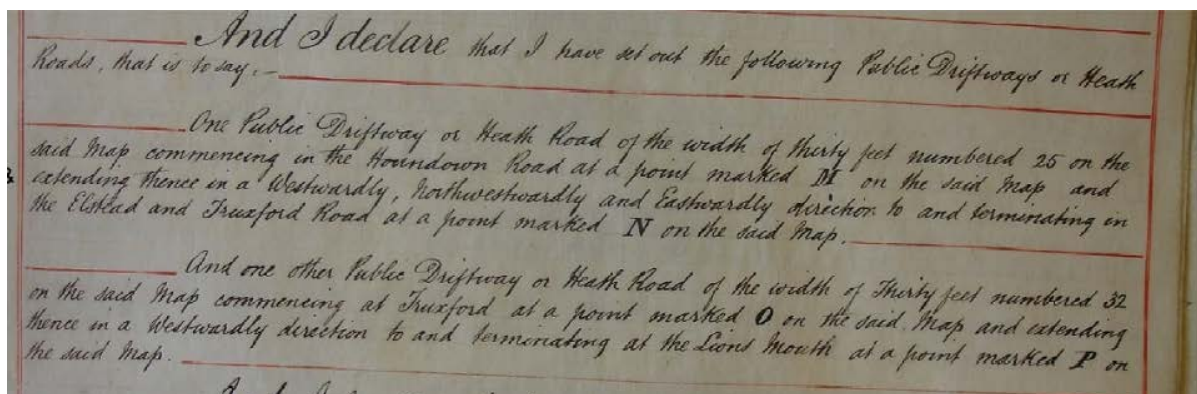 And I declare that I have set out the following Public Driftways or Heath
Roads, that is to say,—
One Public Driftway or Heath Road of the width of thirty feet numbered 25 on the
said Map commencing in the Houndown Road at a point marked M on the said Map and
extending thence in a Westwardly, Northwestwardly and Eastwardly direction to and terminating in
the Elstead and Truxford Road at a point marked N on the said Map.
And one other Public Driftway or Heath Road of the width of Thirty feet numbered 32
on the said Map commencing at Truxford at a point marked O on the said Map and extending
thence in a Westwardly direction to and terminating at the Lions Mouth at a point marked P on
the said Map.